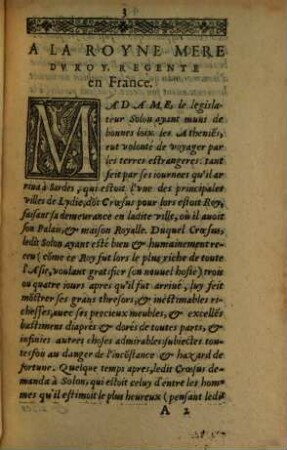 3
A LA ROYNE MERE
DV ROY, REGENTE
en France.
MADAME, le legisla-
teur Solon ayant muni de
bonnes loix les Atheniẽs,
eut volonté de voyager par
les terres estrangeres: tant
feit par ses iournees qu'il ar
riua à Sardes, qui estoit l'vne des principales
villes de Lydie, dõt Crœsus pour lors estoit Roy,
faisant sa demeurance en ladite ville, où il auoit
son Palais, & maison Royalle. Duquel Crœsus,
ledit Solon ayant esté bien & humainement re-
ceu (cõme ce Roy fut lors le plus riche de toute
l'Asie, voulant gratifier son nouuel hoste) trois
ou quatre iours apres qu'il fut arriué, luy feit
mõstrer ses grans thresors, & inestimables ri-
chesses, auec ses precieux meubles, & excellẽs
bastimens diaprés & dorés de toutes parts, &
infinies autres choses admirables: subiectes tou-
tesfois au danger de l'incõstance & hazard de
fortune. Quelque temps apres, ledit Crœsus de-
manda à Solon, qui estoit celuy d'entre les hom-
mes qu'il estimoit le plus heureux (pensant ledi-
A 2